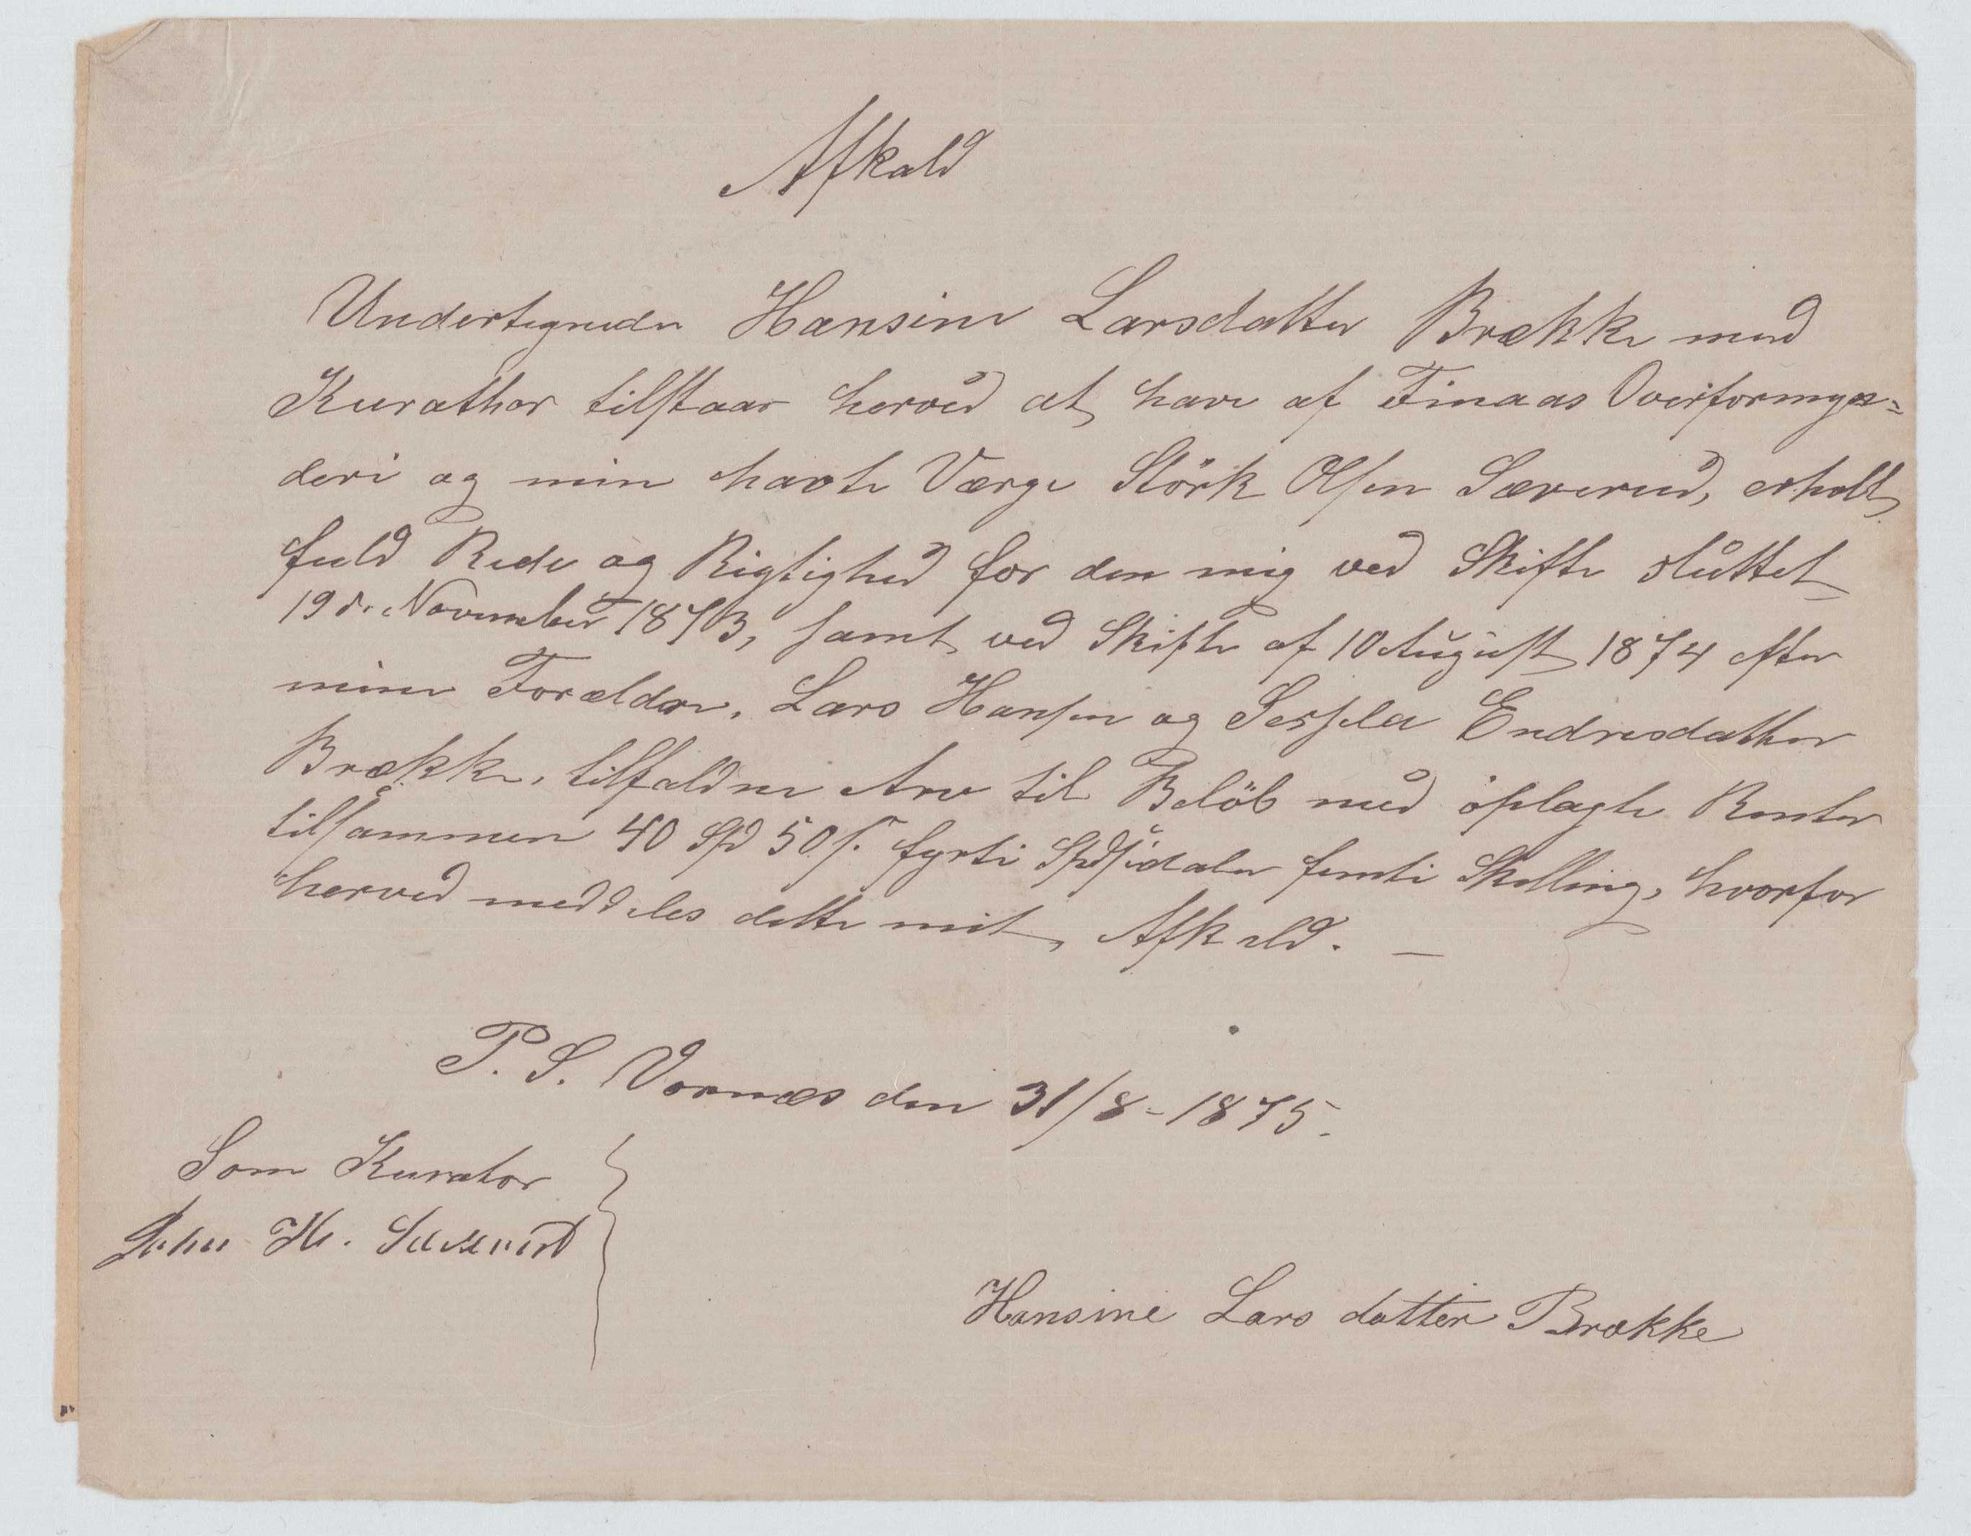 Afkald
Undertegnede Hansine Larsdatter Brække med
Kurathor tilstaar herved at have af Finaas Overformyn=
deri og min havte Værge Störk Olsen Sæverud, erholt
fuld Rede og Rigtighed for den mig ved Skifte sluttet
19de November 1873, samt ved Skifte af 10 August 1874 efter
mine Forældre, Lars Hansen og Sessela Endresdatter
Brække, tilfaldne Arv til Belöb med oplagte Renter
tilsammen 40 Spd 50 s. fyrti Spesidaler femti Skilling, hvorfor
herved meddeles dette mit Afkald. —
P. S. Vornæs den 31/8-1875.
Som Kurator
John H.
Hansine Lars datter Brække